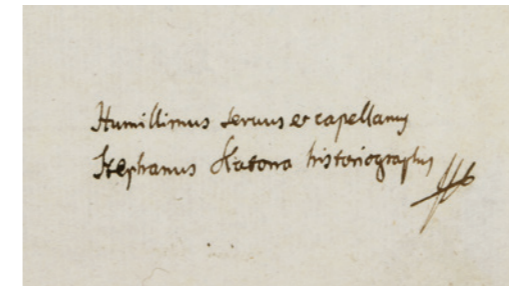 Humillimus servus et capellanus
Stephanus Katona historiographus